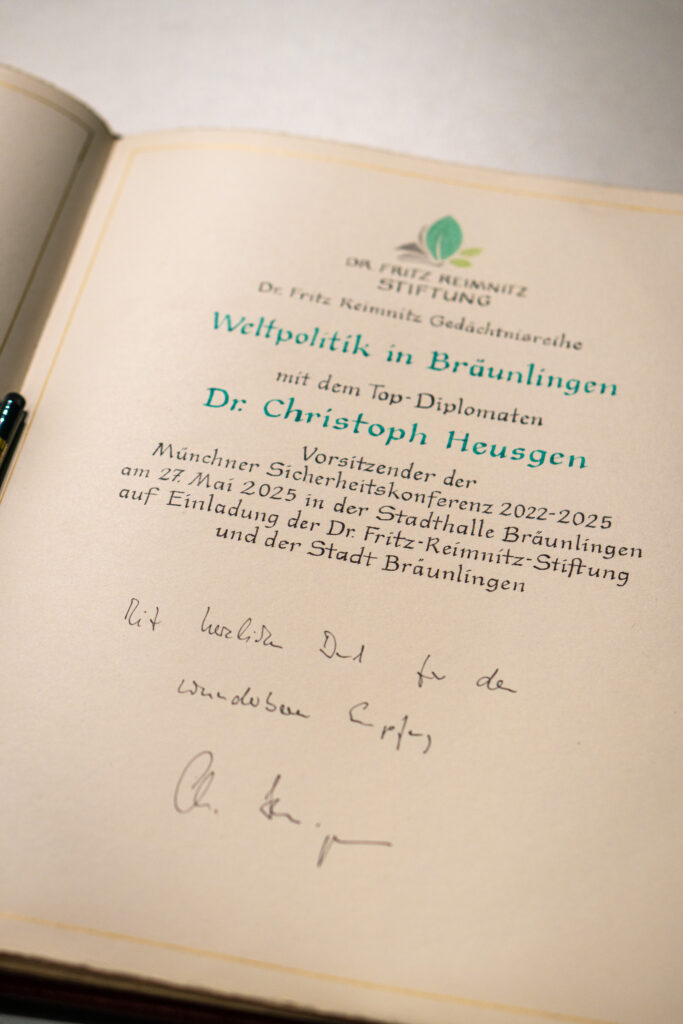 DR. FRITZ REIMNITZ
STIFTUNG
Dr. Fritz Reimnitz Gedächtnisreihe
Weltpolitik in Bräunlingen
mit dem Top-Diplomaten
Dr. Christoph Heusgen
Vorsitzender der
Münchner Sicherheitskonferenz 2022-2025
am 27. Mai 2025 in der Stadthalle Bräunlingen
auf Einladung der Dr. Fritz-Reimnitz-Stiftung
und der Stadt Bräunlingen
Mit herzlichem Dank für den
wunderbaren Empfang
Ch. Heusgen